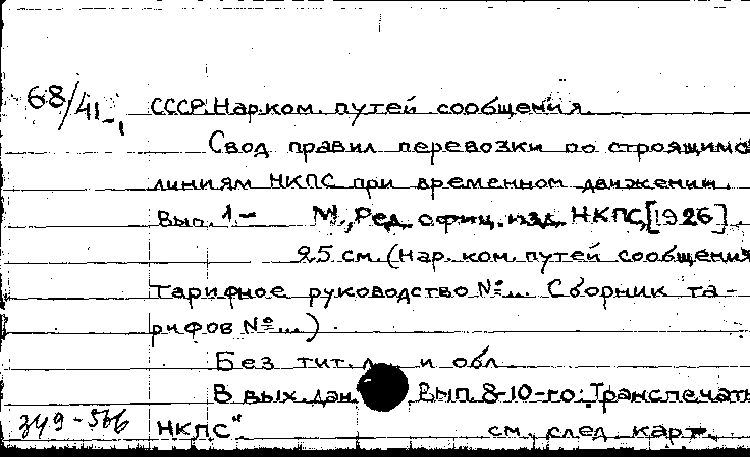 68/41-1 СССР. Нар.ком. путей сообщения.
Свод правил перевозки по строящимся
линиям НКПС при временном движении.
Вып. 1 - М., Ред. офиц. изд. НКПС, [1926].
25 см. (Нар. ком. путей сообщения
Тарифное руководство №... Сборник та-
рифов №...)
Без тит. л. и обл.
В вых. дан. Вып. 8-10-го: „Транспечать
349-566 НКПС“ см. след. карт.